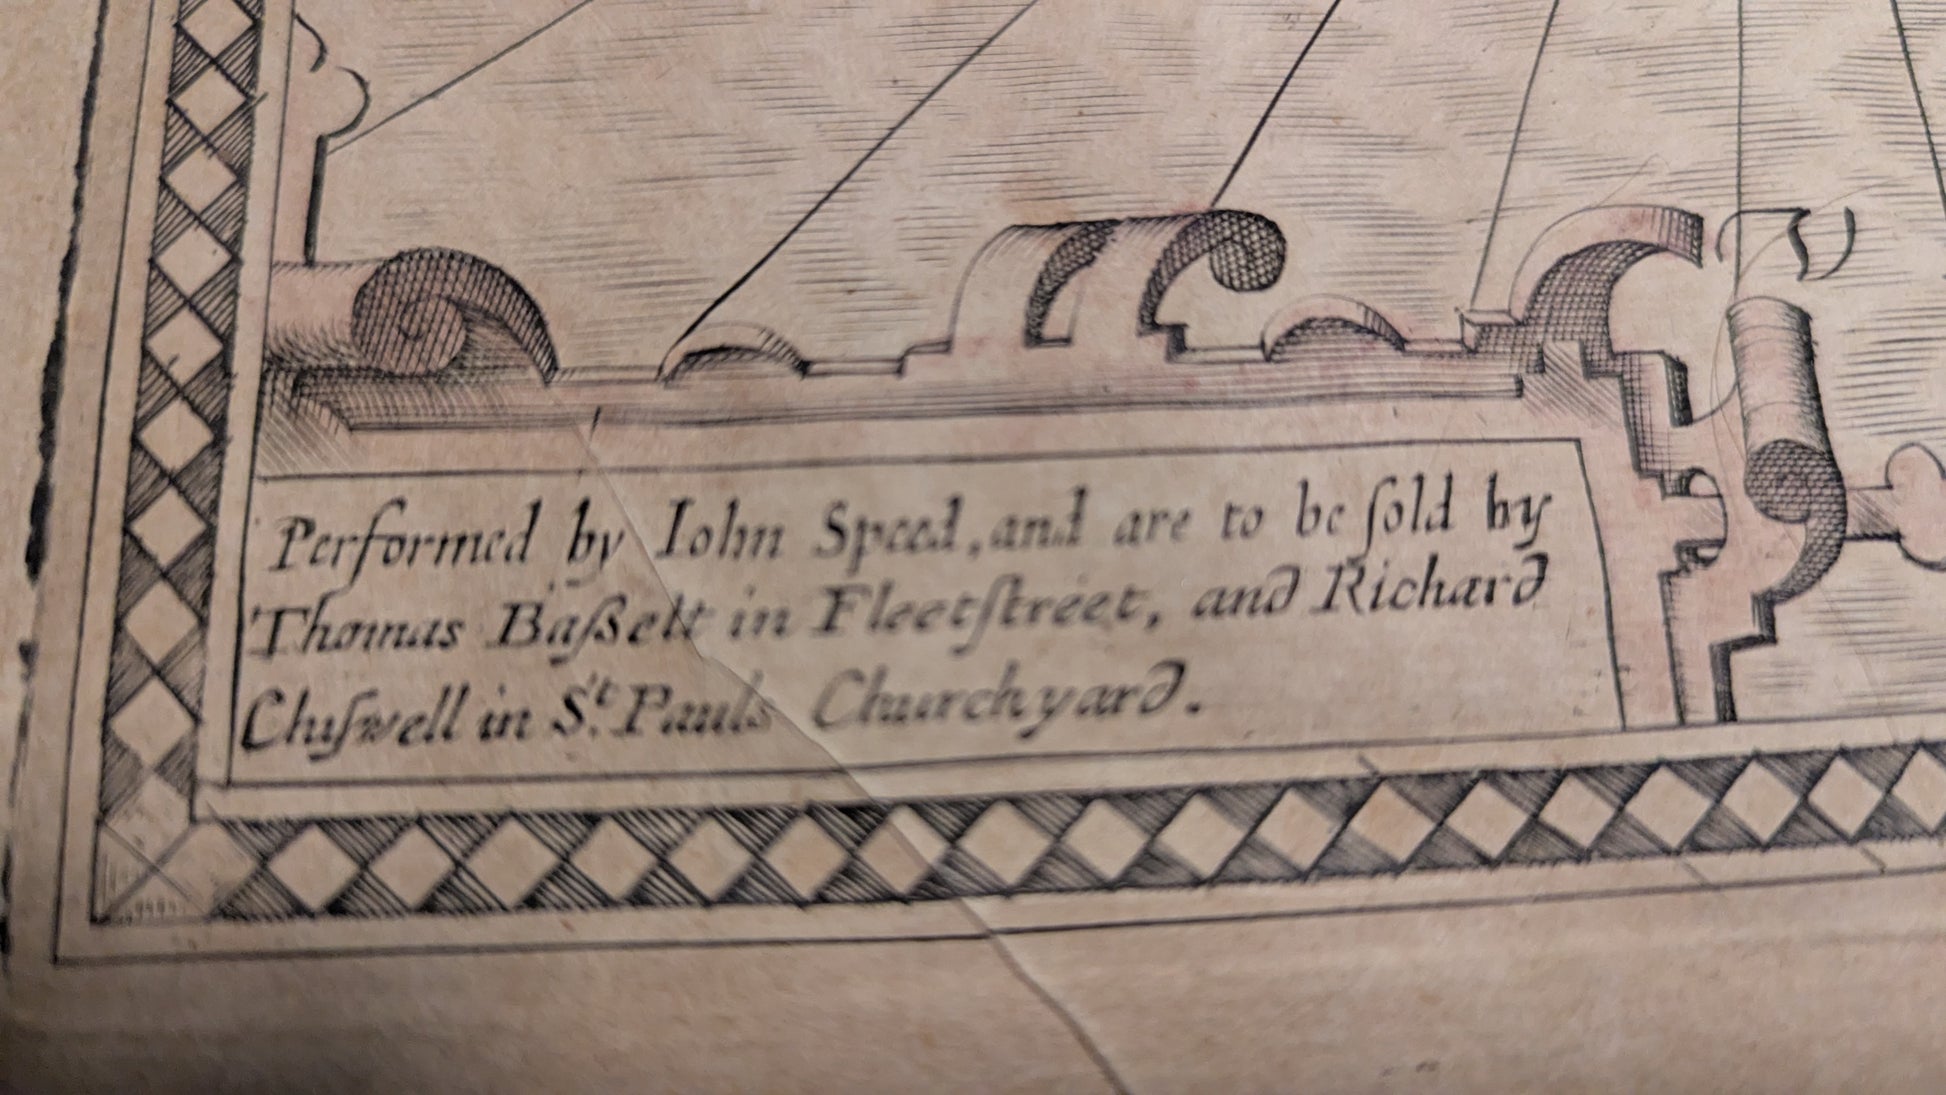 Performed by Iohn Speed, and are to be ſold by
Thomas Baßett in Fleetſtreet, and Richard
Chiſwell in S.t Pauls Churchyard.